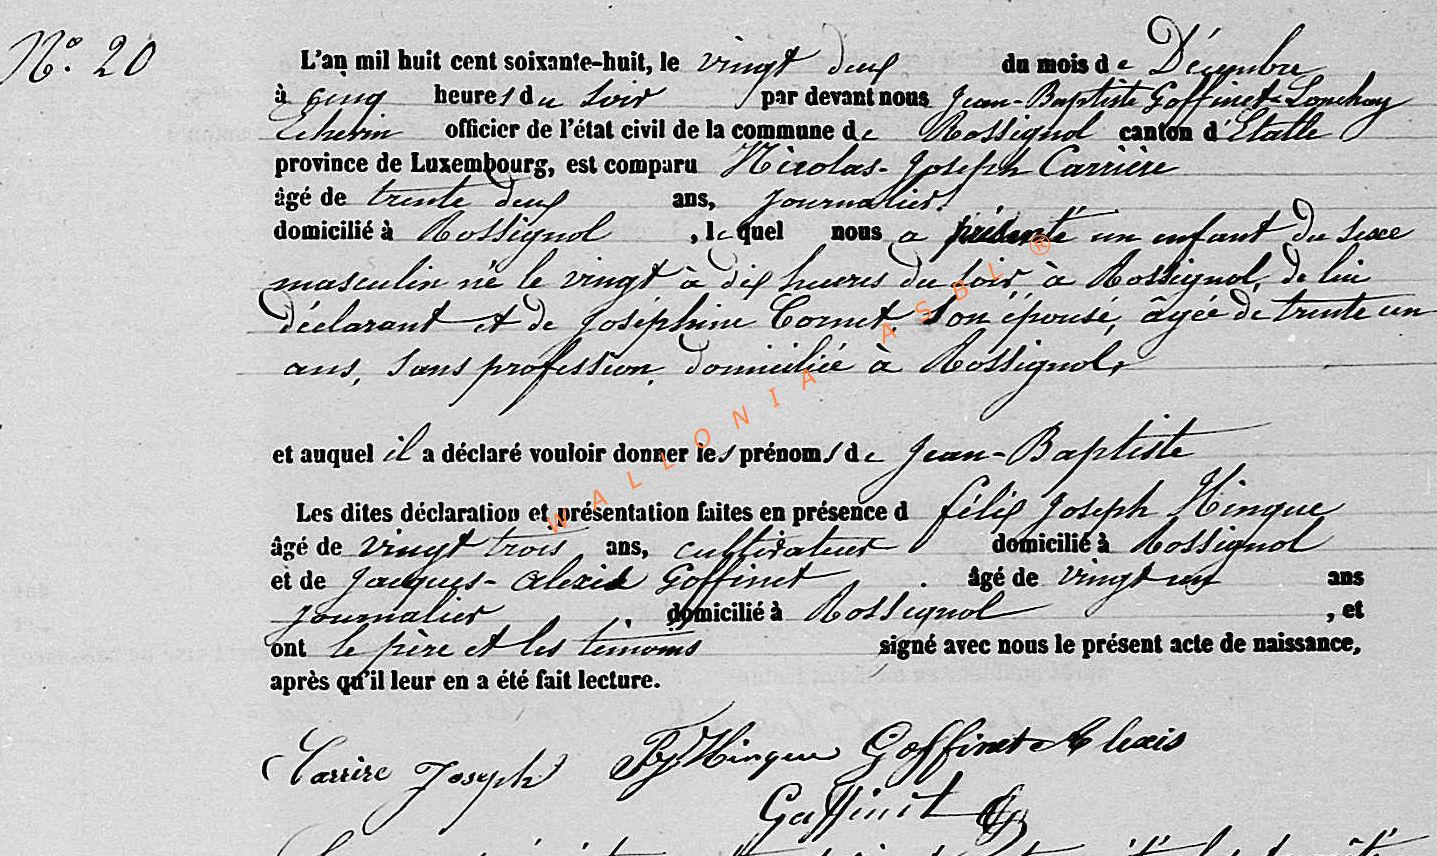 N° 20
L'an mil huit cent soixante-huit, le vingt deux du mois de Décembre
à cinq heures du soir par devant nous Jean-Baptiste Goffinet-Lonchay
Echevin officier de l'état civil de la commune de Rossignol canton d'Etalle
province de Luxembourg, est comparu Nicolas-Joseph Carrière
âgé de trente deux ans, journalier,
domicilié à Rossignol, lequel nous a présenté un enfant du sexe
masculin né le vingt à dix heures du soir, à Rossignol, de lui
déclarant et de Joséphine Cornet, son épouse, âgée de trente un
ans, sans profession, domiciliée à Rossignol,
et auquel il a déclaré vouloir donner les prénoms de Jean-Baptiste
Les dites déclaration et présentation faites en présence d félix Joseph Hinque
âgé de vingt trois ans, cultivateur domicilié à Rossignol
et de Jacques-Alexis Goffinet âgé de vingt un ans
journalier domicilié à Rossignol, et
ont le père et les témoins signé avec nous le présent acte de naissance,
après qu'il leur en a été fait lecture.
Carrire Joseph Hinque Goffinet Alexis
Goffinet
WALLONIA ASBL ®